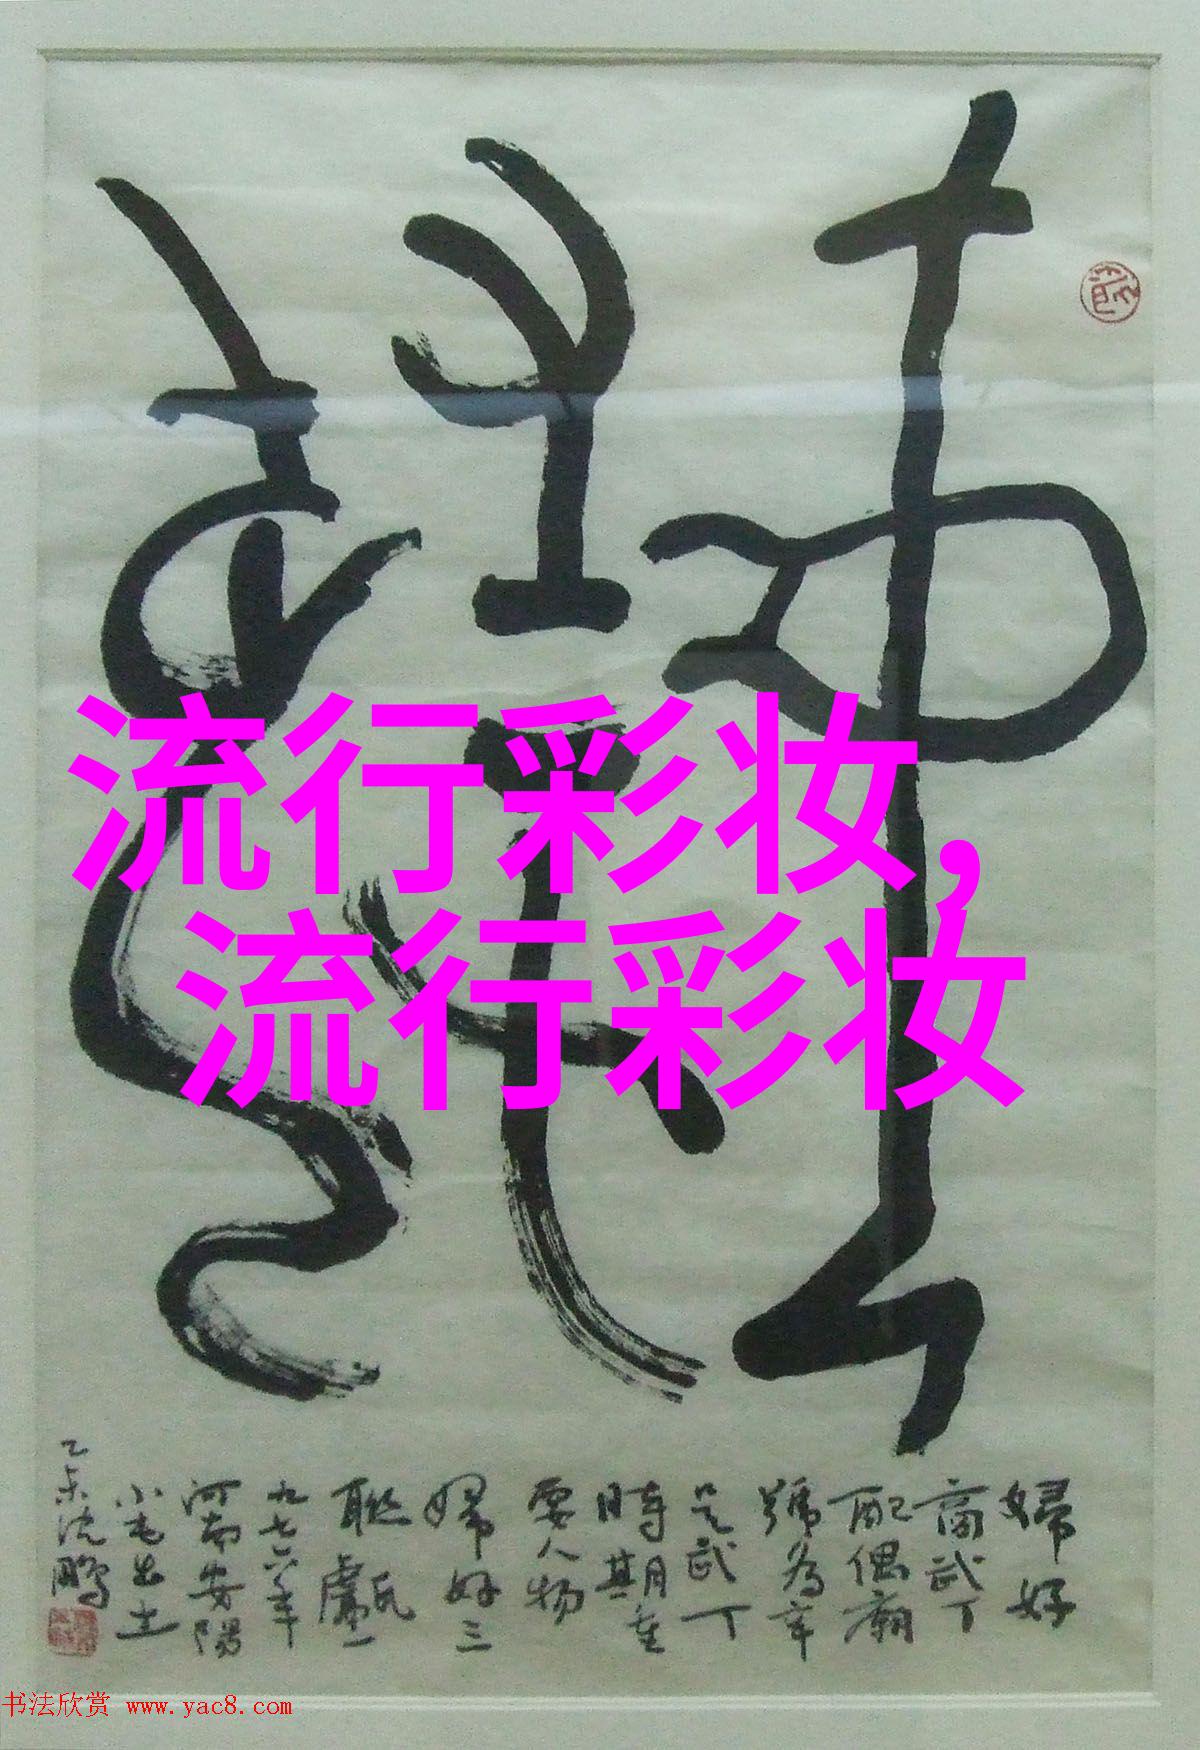 流行彩妆,
流行彩妆
婦好
商武丁
配偶廟
號为辛
是武丁
時期重
要人物
婦好三
聯甗一
九七六年
河南安陽
小屯出土
乙未沈鵬
书法欣赏 www.yac8.com